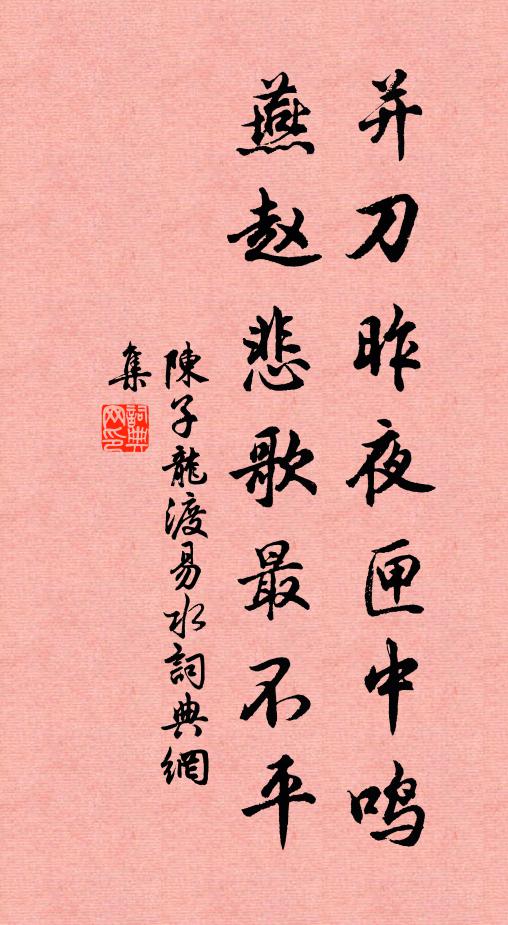 并刀昨夜匣中鸣
燕赵悲歌最不平
陳子龍渡易水詞典網
集
詞典
网印